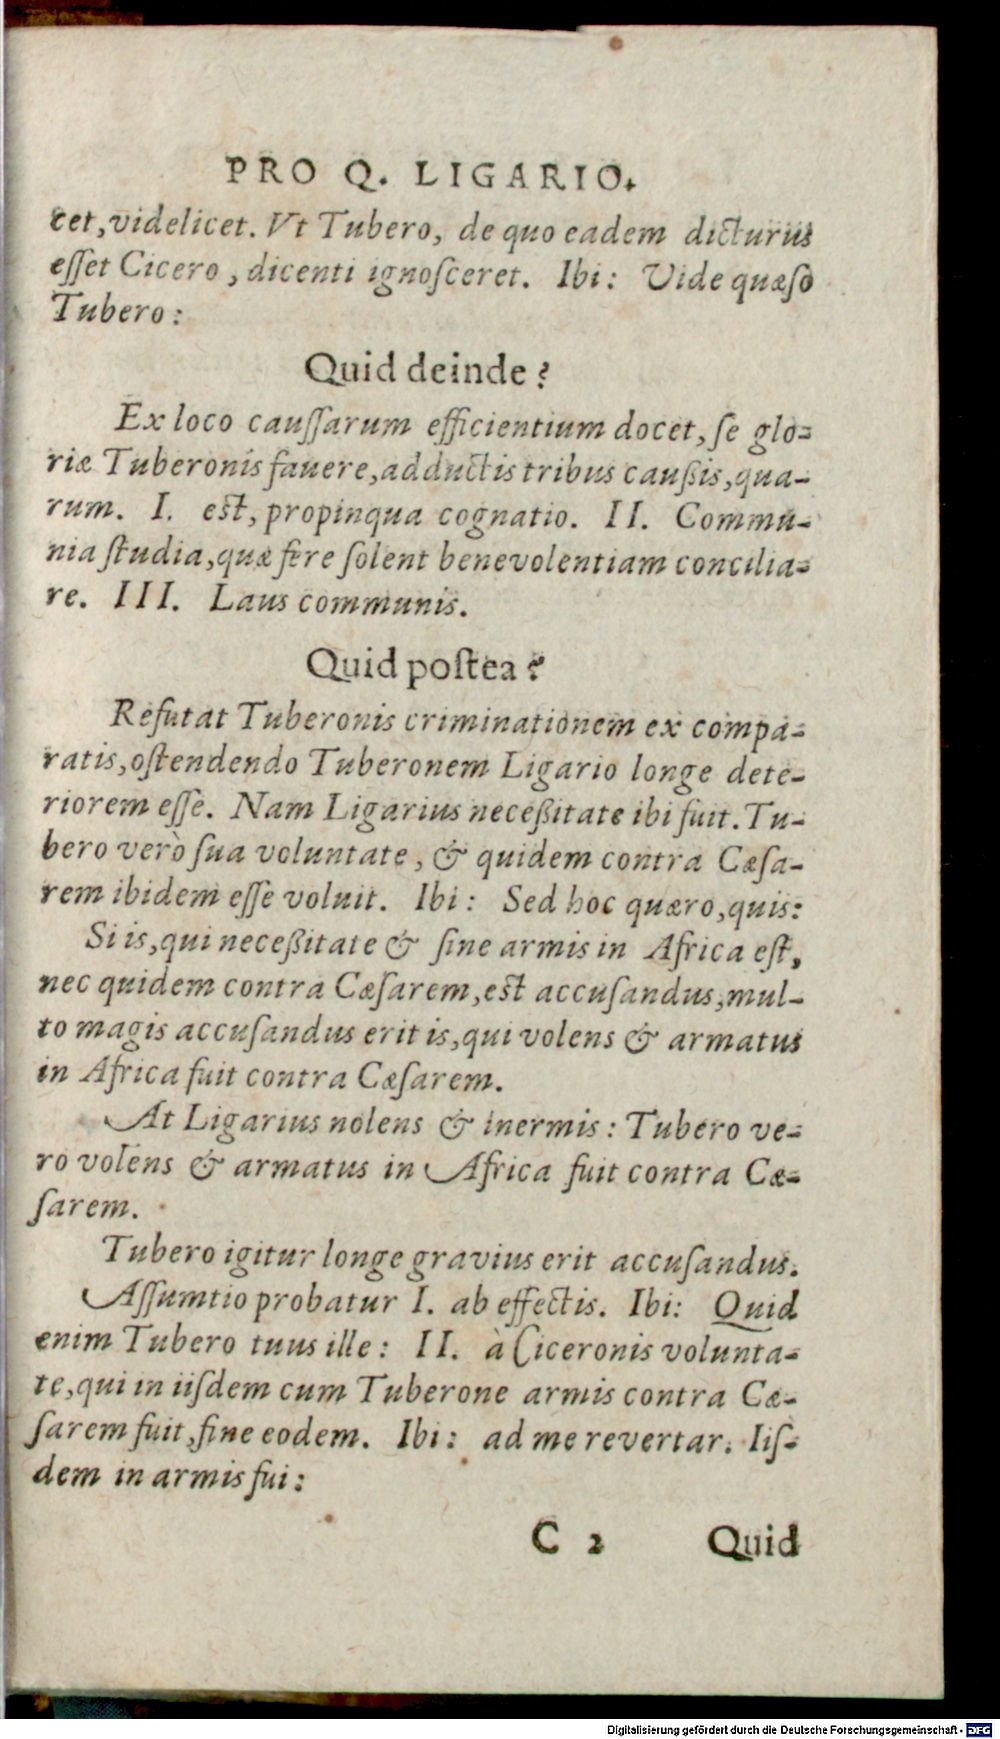 PRO Q. LIGARIO.
cet, videlicet. Vt Tubero, de quo eadem dicturus
eſſet Cicero, dicenti ignoſceret. Ibi: Vide quæſo
Tubero:
Quid deinde?
Ex loco cauſſarum efficientium docet, ſe glo-
riæ Tuberonis fauere, adductis tribus caußis, qua-
rum. I. est, propinqua cognatio. II. Commu-
nia ſtudia, quæ fere ſolent benevolentiam concilia-
re. III. Laus communis.
Quid poſtea?
Refutat Tuberonis criminationem ex compa-
ratis, oſtendendo Tuberonem Ligario longe dete-
riorem eſſe. Nam Ligarius neceßitate ibi fuit. Tu-
bero verò ſua voluntate, & quidem contra Cæſa-
rem ibidem eſſe voluit. Ibi: Sed hoc quæro, quis:
Si is, qui neceßitate & ſine armis in Africa eſt,
nec quidem contra Cæſarem, est accuſandus, mul-
to magis accuſandus erit is, qui volens & armatus
in Africa fuit contra Cæſarem.
At Ligarius nolens & inermis: Tubero ve-
ro volens & armatus in Africa fuit contra Cæ-
ſarem.
Tubero igitur longe gravius erit accuſandus.
Aſſumtio probatur I. ab effectis. Ibi: Quid
enim Tubero tuus ille: II. à Ciceronis volunta-
te, qui in iiſdem cum Tuberone armis contra Cæ-
ſarem fuit, fine eodem. Ibi: ad me revertar. Iiſ-
dem in armis fui:
C 2 Quid
Digitalisierung gefördert durch die Deutsche Forschungsgemeinschaft - DFG